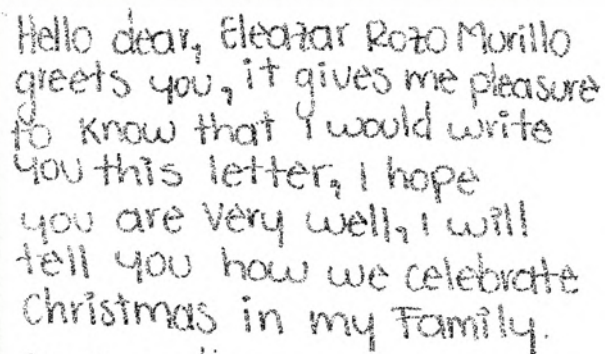 Hello dear, Eleazar Rozo Murillo
greets you, it gives me pleasure
to know that I would write
you this letter, I hope
you are very well, I will
tell you how we celebrate
Christmas in my Family.